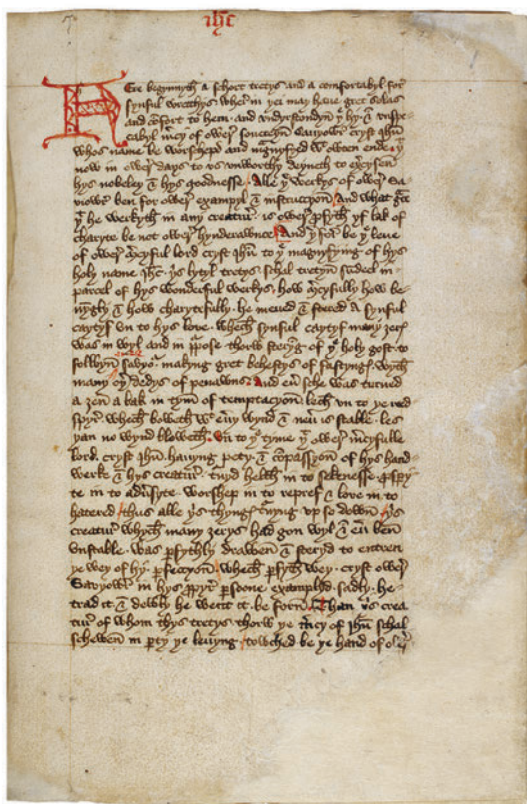 ihc
Here begynnyth a schort tretys and a comfortabyl for
synful wrecchys wher in yei may haue gret solas
and cōfort to hem · and vndyrstondyn yͤ hy · & vnspe-
cabyl mcy of ower souereyn sauyowr cryst ihu
whos name be worschepd and magnyfyed wtowten ende · yt
now in ower days to us unworthy deyneth to exercysen
hys nobeley & hys goodnesse · Alle yͤ werkys of ower sa-
uiowr ben for ower exampyl & instruccyon · And what gce
yt he werkyth in any creatur · is ower pfyth yf lak of
charyte be not ower hynderawnce · And yͬfor be yͤ leue
of ower mcyful lord cryst ihu to yͤ magnyfying of hys
holy name ihc · ys lytyl tretys schal tretyn sumdeel in
parcel of hys wonderful werkys · how mcyfully how be-
nyngly & how charytefully · he meued & stered a synful
caytyf vn to hys loue · whech synful caytyf many zerys
was in wyl and in ppose thorw steryng of yͤ holy gost · to
folwyn oure sauyowr · makyng gret behestys of fastyngys wyth
many oyr dedys of penawns · And eū sche was turned
a zen a bak in tym of temptacyon · lech vn to ye red
spyr · whech boweth wt eūy wynd & neū is stable · les
yan no wynd bloweth · vn to yͤ tyme yt ower mcyfulle
lord · cryst ihu · hauyng pety · & cōpassyon of hys hand
werke & hys creatur · turnyd helth in to sekenesse · psperyte
in to aduersyte · worshep in to repref & loue in to
hatered · thus alle ys thyngys turnyng vp so down · ys
creatur whych many zerys had gon wyl & eū ben
vnstable · was pfythly drawen & steryd to entren
ye wey of hy pfeccyon · whech pfyth wey · cryst ower
Savyowr in hys ppyr psoone examplyd · sadly · he
trad it & dewly he went it · be forn · Than ys crea
tur of whom thys tretys · thorw ye mcy of ihu schal
schewen in pty ye leuyng · towched be ye hand of owyr